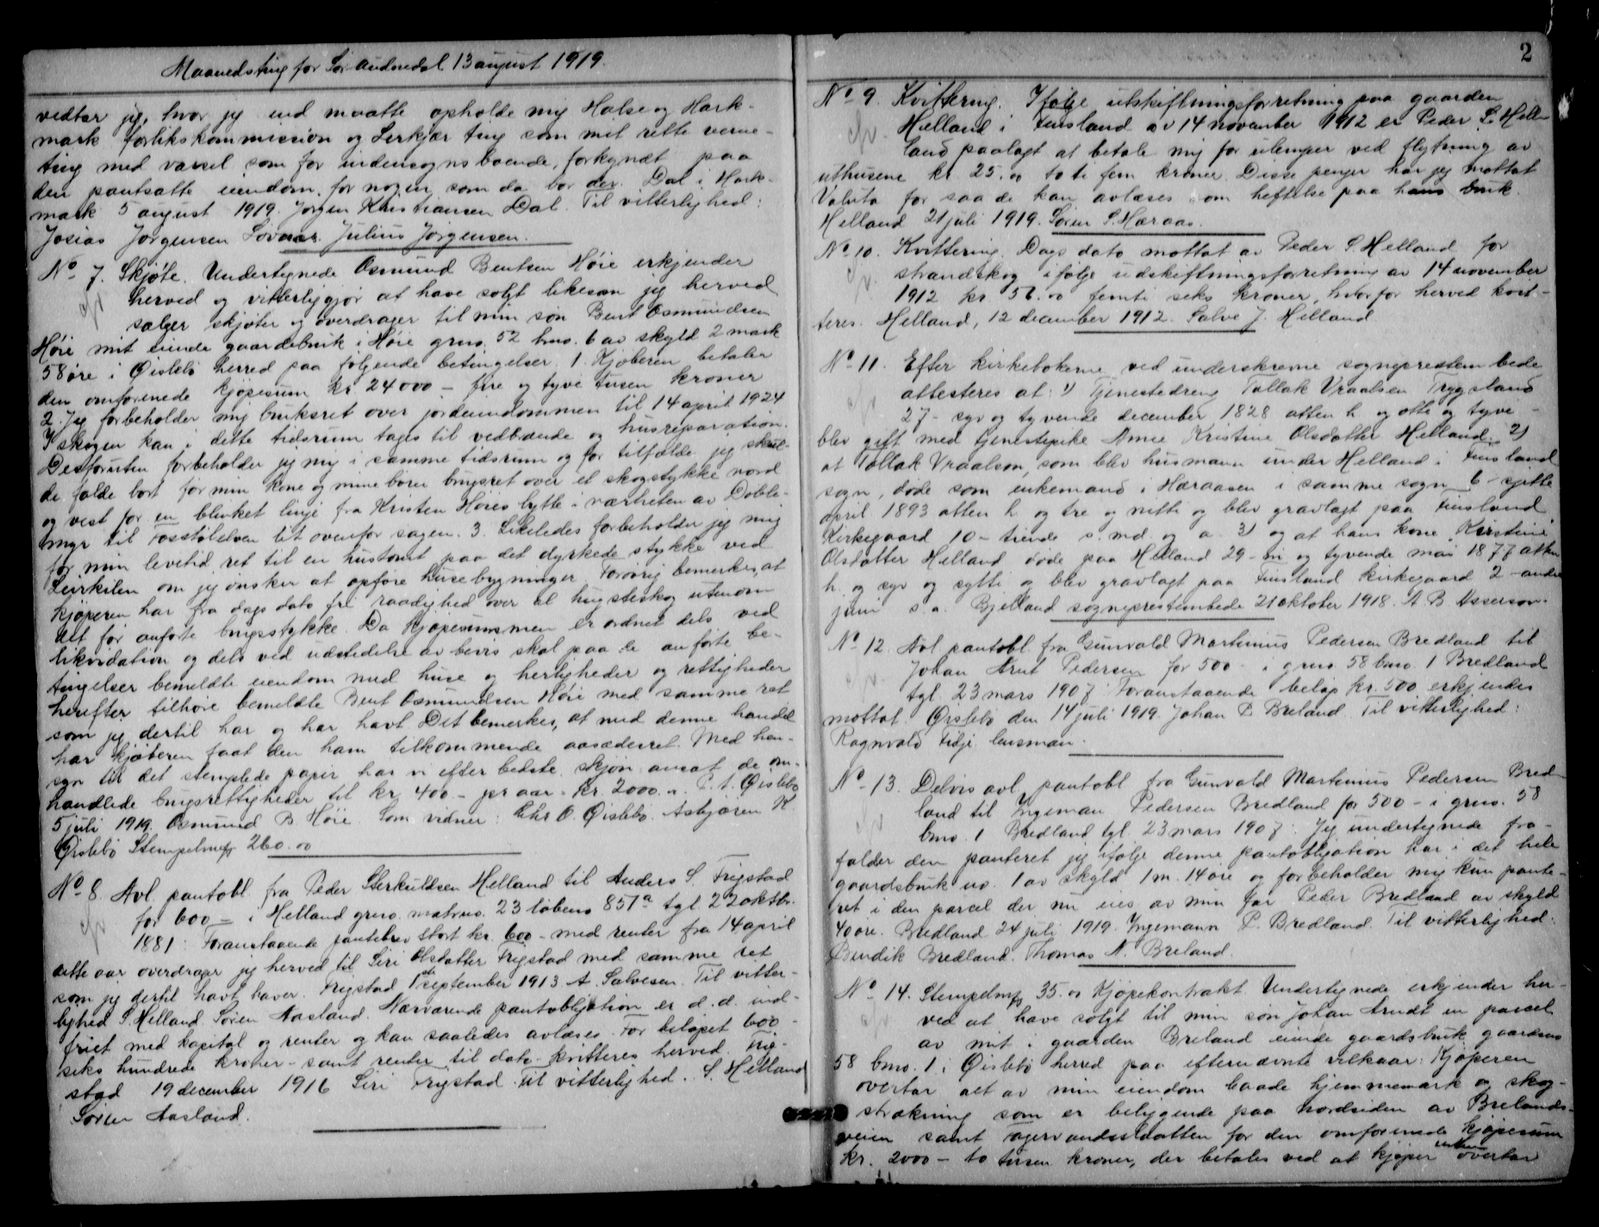 Maanedsting for Sør-Audnedal 13 august 1919.
vedtar jeg, hvor jeg end maatte opholde mig Halse og Hark-
mark forlikskommission og Lerkjær ting som mit rette verne-
ting med varsel som for indensogns boende, forkyndt paa
den pantsatte eiendom, for nogen, som da bor der. Dal i Hark-
mark 5 august 1919. Jørgen Kristiansen Dal. Til vitterlighed:
Josias Jørgensen Julius Jørgensen.
No 7. Skjøte. Undertegnede Osmund Bentsen Høie erkjender
herved og vitterliggjør at have solgt likesom jeg herved
sælger skjøter og overdrager til min søn Bent Osmundsen
Høie mit eiende gaardsbruk i Høie grno. 52 bno. 6 av skyld 2 mark
58 øre i Øislebø herred paa følgende betingelser 1. Kjøberen betaler
den omforenede kjøpesum kr 24000 - fire og tyve tusen kroner
2. Jeg forbeholder mig bruksret over jordeiendommen til 14 april 1924
I skogen kan i dette tidsrum tages til vedbrænde og husreparation.
Desforuten forbeholder jeg mig i samme tidsrum og for tilfælde jeg skul-
de falde bort for min kone og mine børn bruksret over et skogstykke nord
og vest for en blinket linje fra Kristen Høies hytte i nærheten av Doble-
myr til Fosstølelven litt ovenfor sagen. 3. Likeledes forbeholder jeg mig
for min levetid ret til en hustomt paa det dyrkede stykke ved
om jeg ønsker at opføre husebygninger. Forøvrig bemerkes, at
kjøperen har fra dags dato fri raadighed over al hugstskog utenom
det før anførte brugsstykke. Da kjøpesummen er ordnet dels ved
likvidation og dels ved utstedelse av bevis skal paa de anførte be-
tingelser bemeldte eiendom med huse og herligheder og rettigheder
herefter tilhøre bemeldte Bent Osmundsen Høie med samme ret
som jeg dertil har og har havt. Det bemerkes, at med denne handel
har kjøberen faat den ham tilkommende aasædesret. Med hen-
syn til det stemplede papir har vi efter bedste skjøn ansat de om-
handlede brugsrettigheder til kr. 400 - pr aar - kr. 2000.00 P. t. Øislebø
5 juli 1919. Osmund B. Høie. Som vidner: Chr. O. Øislebø. Asbjørn K.
Øislebø Stempelmrk 260.00
No 8. Avl. pantobl. fra Peder Sterkuldsen Helland til Anders S. Frigstad
for 600 - i Helland grno. matrno. 23 løbeno 851a tgl 22 oktbr.
1881: Foranstaaende pantebrev stort kr. 600 - med renter fra 14 april
dette aar overdrager jeg herved til Siri Olsdatter Frigstad med samme ret
som jeg dertil havt haver. Frigstad 1 september 1913 A. Salvesen. Til vitter-
lighed S. Helland Søren Aasland. Nærværende pantobligation er d. d. ind-
friet med kapital og renter og kan saaledes avlæses. For beløpet 600 -
seks hundrede kroner - samt renter til dato - kvitteres herved. Frig-
stad 19 december 1916 Siri Frigstad. Til vitterlighed. S. Helland
Søren Aasland.
2
No 9. Kvittering. Ifølge utskiftningsforretning paa gaarden
Helland i Finsland av 14 november 1912 er Peder S. Hel-
land paalagt at betale mig for ulemper ved flytning av
uthusene kr. 25.00 to ti fem kroner. Disse penger har jeg mottat
Valuta for saa de kan avlæses som heftelse paa hans bruk.
Helland 21 juli 1919. Søren S. Haraas.
No 10. Kvittering. Dags dato mottat av Peder S. Helland for
strandskog ifølge udskiftningsforretning av 14 november
1912 kr. 56.00 femti seks kroner, hvorfor herved kvit-
teres. Helland, 12 december 1912. Salve J. Helland
No 11. Efter kirkebøkerne ved underskrevne sogneprestembede
attesteres at: 1) Tjenestedreng Tallak Vraalsen Trygsland
27 - syv og tyvende december 1828 atten h. og otte og tyve -
blev gift med tjenestepike Anne Kristine Olsdatter Helland. 2)
at Tallak Vraalsen, som blev husmann under Helland i Finsland
sogn, døde som enkemand i Haraasen i samme sogn 6 - sjette
april 1893 atten h. og tre og nitti og blev gravlagt paa Finsland
Kirkegaard 10 - tiende s. md og a. 3) og at hans kone Kirstine
Olsdatter Helland døde paa Helland 29 - ni og tyvende mai 1877 atten
h. og syv og sytti og blev gravlagt paa Finsland kirkegaard 2 - anden
juni s. a. Bjelland sogneprestembede 21 oktober 1918. A. B. Asserson.
No 12. Avl. pantobl. fra Gunvald Martinius Pedersen Bredland til
Johan Arnt Pedersen for 500 - i grno 58 bno. 1 Bredland
tgl. 23 mars 1907: Foranstaaende beløp kr. 500 erkjendes
mottat. Øislebø den 14 juli 1919. Johan P. Breland. Til vitterlighed:
Ragnvald Tidje lensman.
No 13. Delvis avl. pantobl fra Gunvald Martinius Pedersen Bred-
land til Ingeman Pedersen Bredland for 500 - i grno. 58
bno. 1 Bredland tgl. 23 mars 1907: Jeg undertegnede fra-
falder den panteret jeg ifølge denne pantobligation har i det hele
gaardsbruk no. 1 av skyld 1 m. 14 øre og forbeholder mig kun pante-
ret i den parcel der nu eies av min far Peder Bredland av skyld
40 øre. Bredland 24 juli 1919. Ingemann P. Bredland. Til vitterlighed:
Bendik Bredland. Thomas N. Breland.
No 14. Stempelmrk 35.00 Kjøpekontrakt Undertegnede erkjender her-
ved at have solgt til min søn Johan Arndt en parcel
av mit i gaarden Breland eiende gaardsbruk gaardsno
58 bno. 1 i Øislebø herred paa efternævnte vilkaar: Kjøperen
overtar alt av min eiendom baade hjemmemark og skog-
strækning som er beliggende paa nordsiden av Brelands-
veien samt Fagervandsslaatten for den omforenede kjøpesum
kr. 2000 - to tusen kroner, der betales ved at kjøper overtar